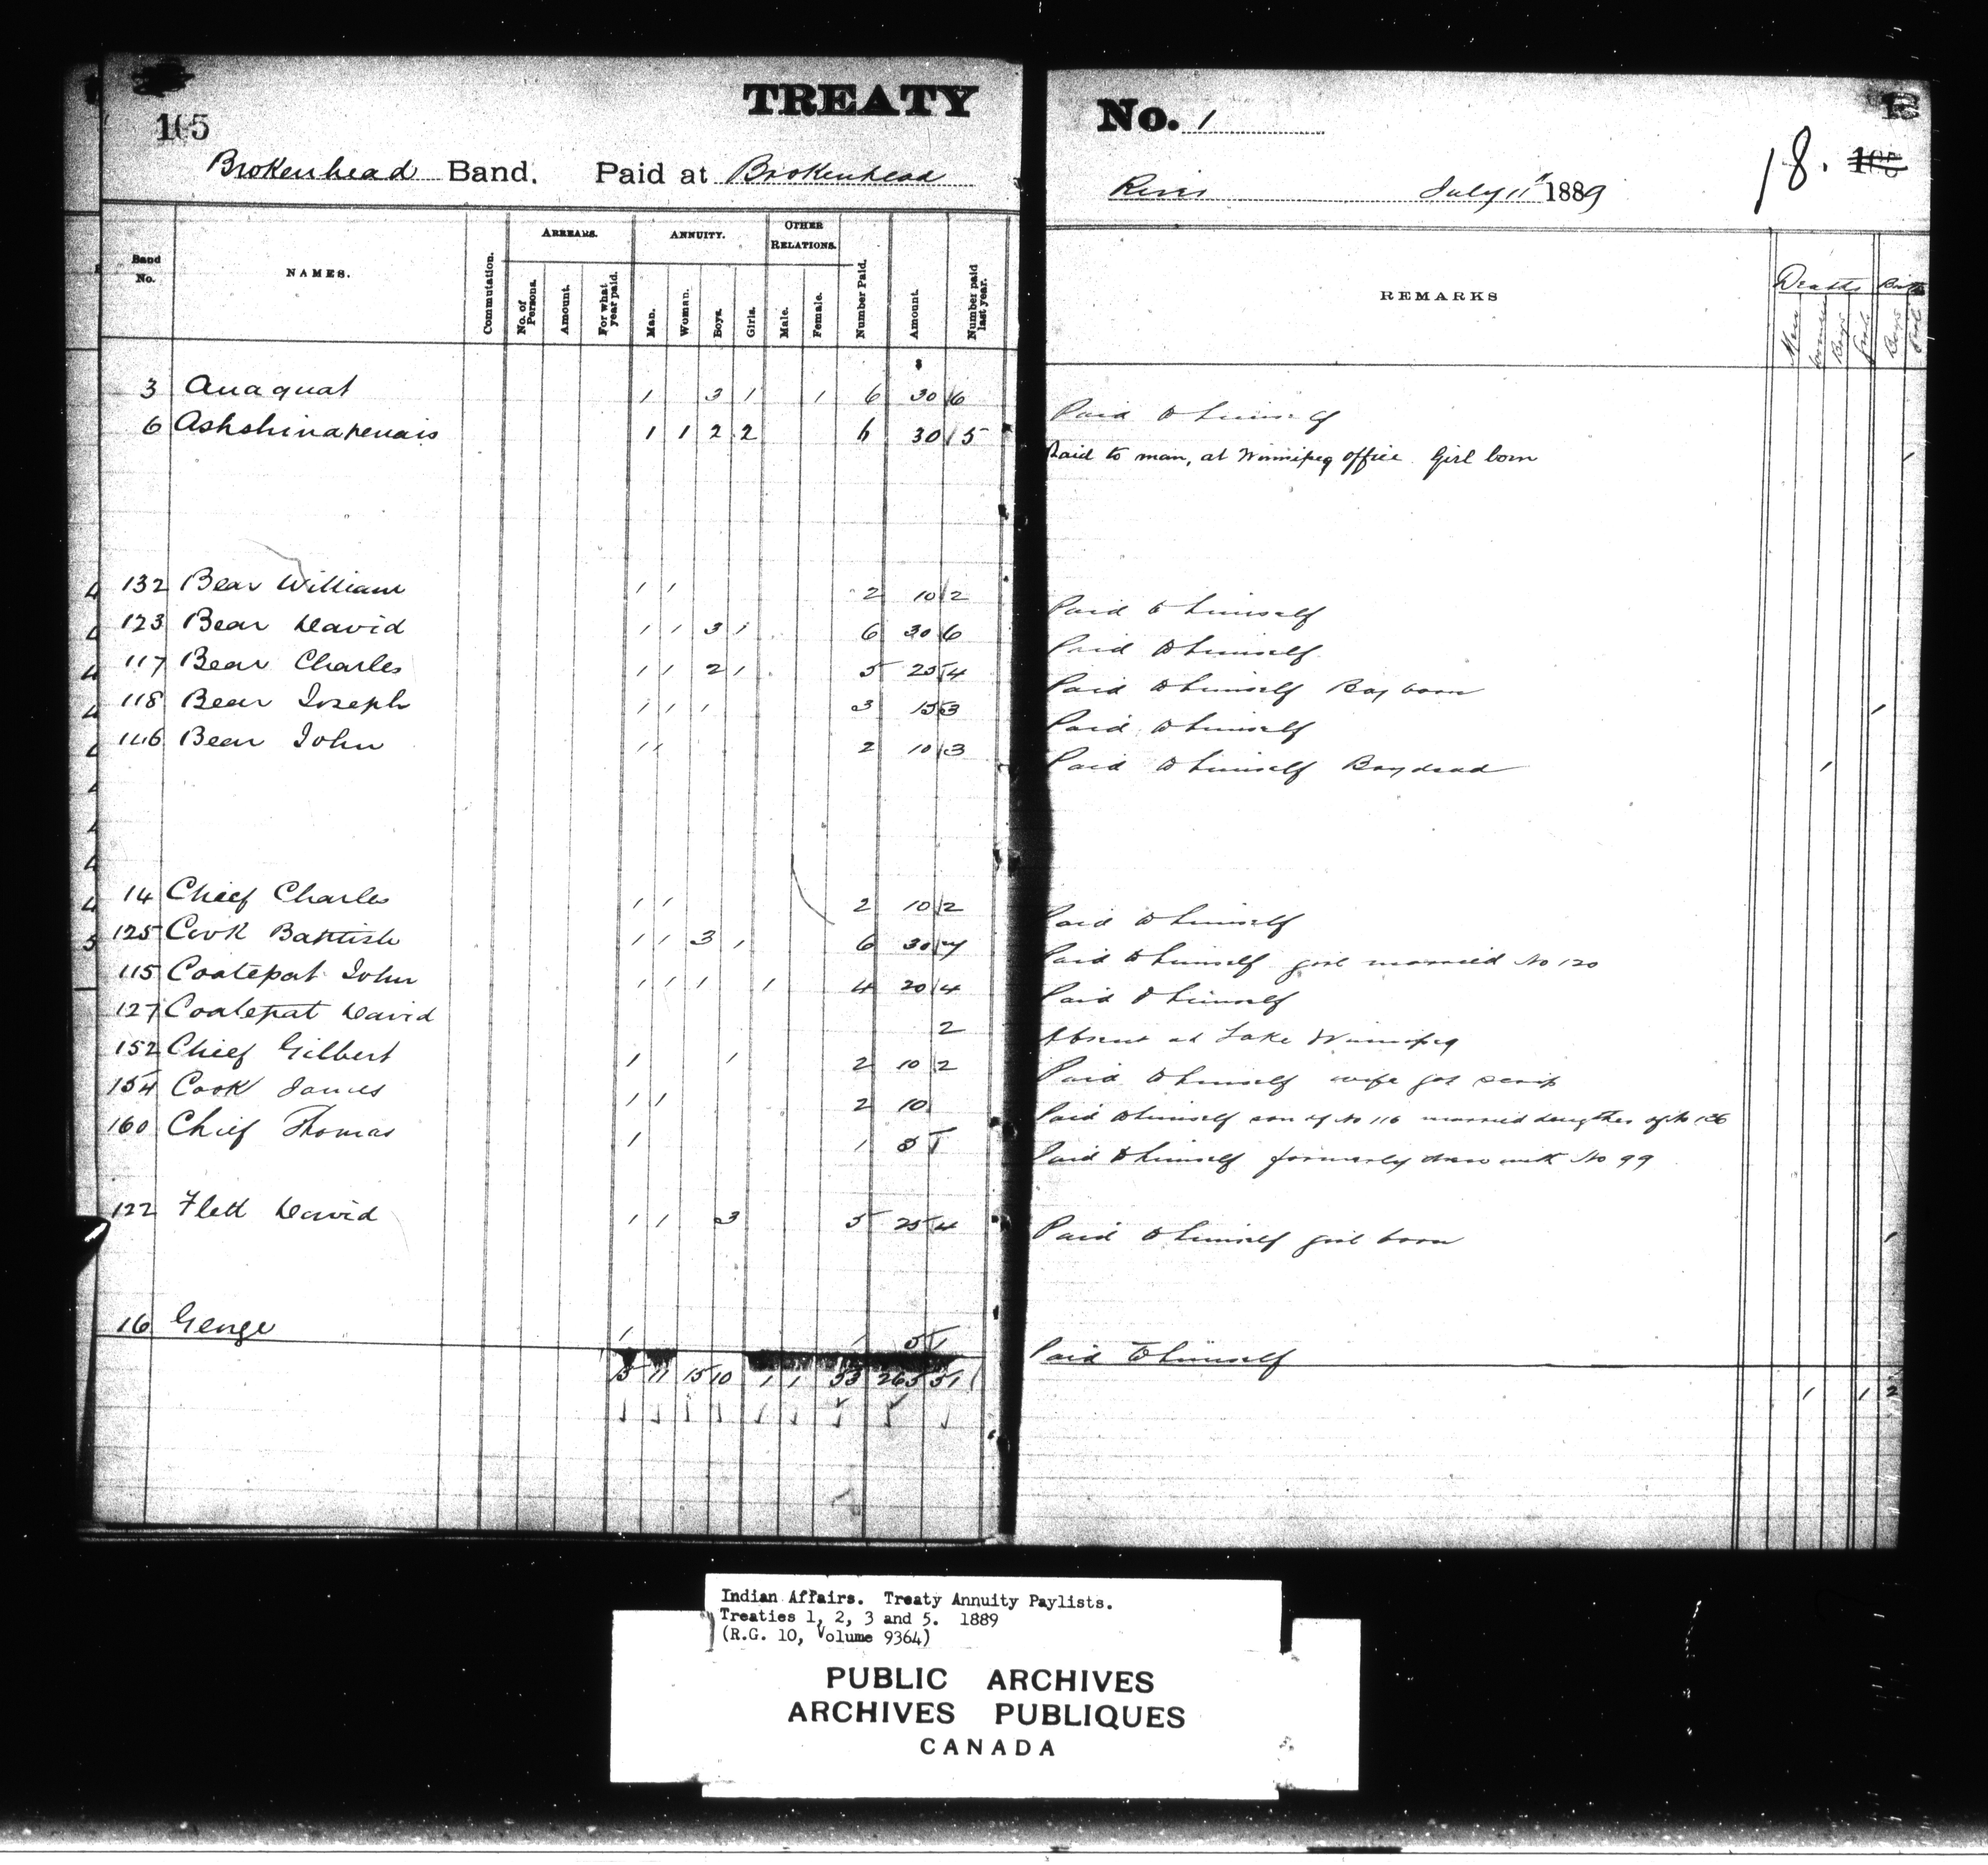 TREATY No. 1
165
18.
Brokenhead Band. Paid at Brokenhead River July 11th 1889
Band No.
NAMES.
Commutation.
ARREARS.
No. of Persons.
Amount.
For what year paid.
ANNUITY.
Man.
Woman.
Boys.
Girls.
OTHER RELATIONS.
Male.
Female.
Number Paid.
Amount.
Number paid last year.
REMARKS
Deaths Births
Men Women Boys Girls Boys Girls
$
3 Anaquat 1 3 1 1 6 30 6 Paid to himself
6 Ashshinapenais 1 1 2 2 6 30 5 Paid to man, at Winnipeg office. Girl born 1
132 Bear William 1 1 2 10 2 Paid to himself
123 Bear David 1 1 3 1 6 30 6 Paid to himself
117 Bear Charles 1 1 2 1 5 25 4 Paid to himself Boy born 1
118 Bear Joseph 1 1 1 3 15 3 Paid to himself
Bear John 1 1 2 10 3 Paid to himself Boy dead 1
14 Chief Charles 1 1 2 10 2 Paid to himself
125 Cook Baptish 1 1 3 1 6 30 7 Paid to himself girl married No 120
115 Coatepat John 1 1 1 1 4 20 4 Paid to himself
127 Coatepat David 2 Absent at Lake Winnipeg
152 Chief Gilbert 1 1 2 10 2 Paid to himself wife got scrip
154 Cook James 1 1 2 10 Paid to himself son of No 116 married daughter of No
160 Chief Thomas 1 1 5 1 Paid to himself formerly drew with No 99
122 Flett David 1 1 3 5 25 4 Paid to himself girl born 1
16 George 1 1 5 1 Paid to himself
15 11 15 10 1 1 53 265 51 1 1 2
Indian Affairs. Treaty Annuity Paylists.
Treaties 1, 2, 3 and 5. 1889
(R.G. 10, Volume 9364)
PUBLIC ARCHIVES
ARCHIVES PUBLIQUES
CANADA